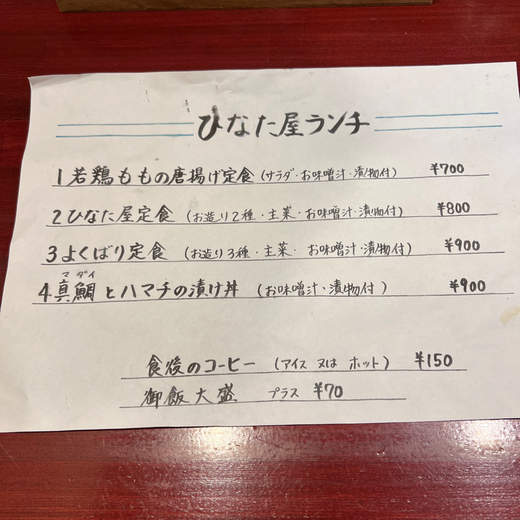 ひなた屋ランチ
1若鶏ももの唐揚げ定食(サラダ・お味噌汁・漬物付) ¥700
2ひなた屋定食(お造り2種・主菜・お味噌汁・漬物付) ¥800
3よくばり定食(お造り3種・主菜・お味噌汁・漬物付) ¥900
マダイ
4真鯛とハマチの漬け丼(お味噌汁・漬物付) ¥900
食後のコーヒー(アイス又はホット) ¥150
御飯大盛 プラス ¥70